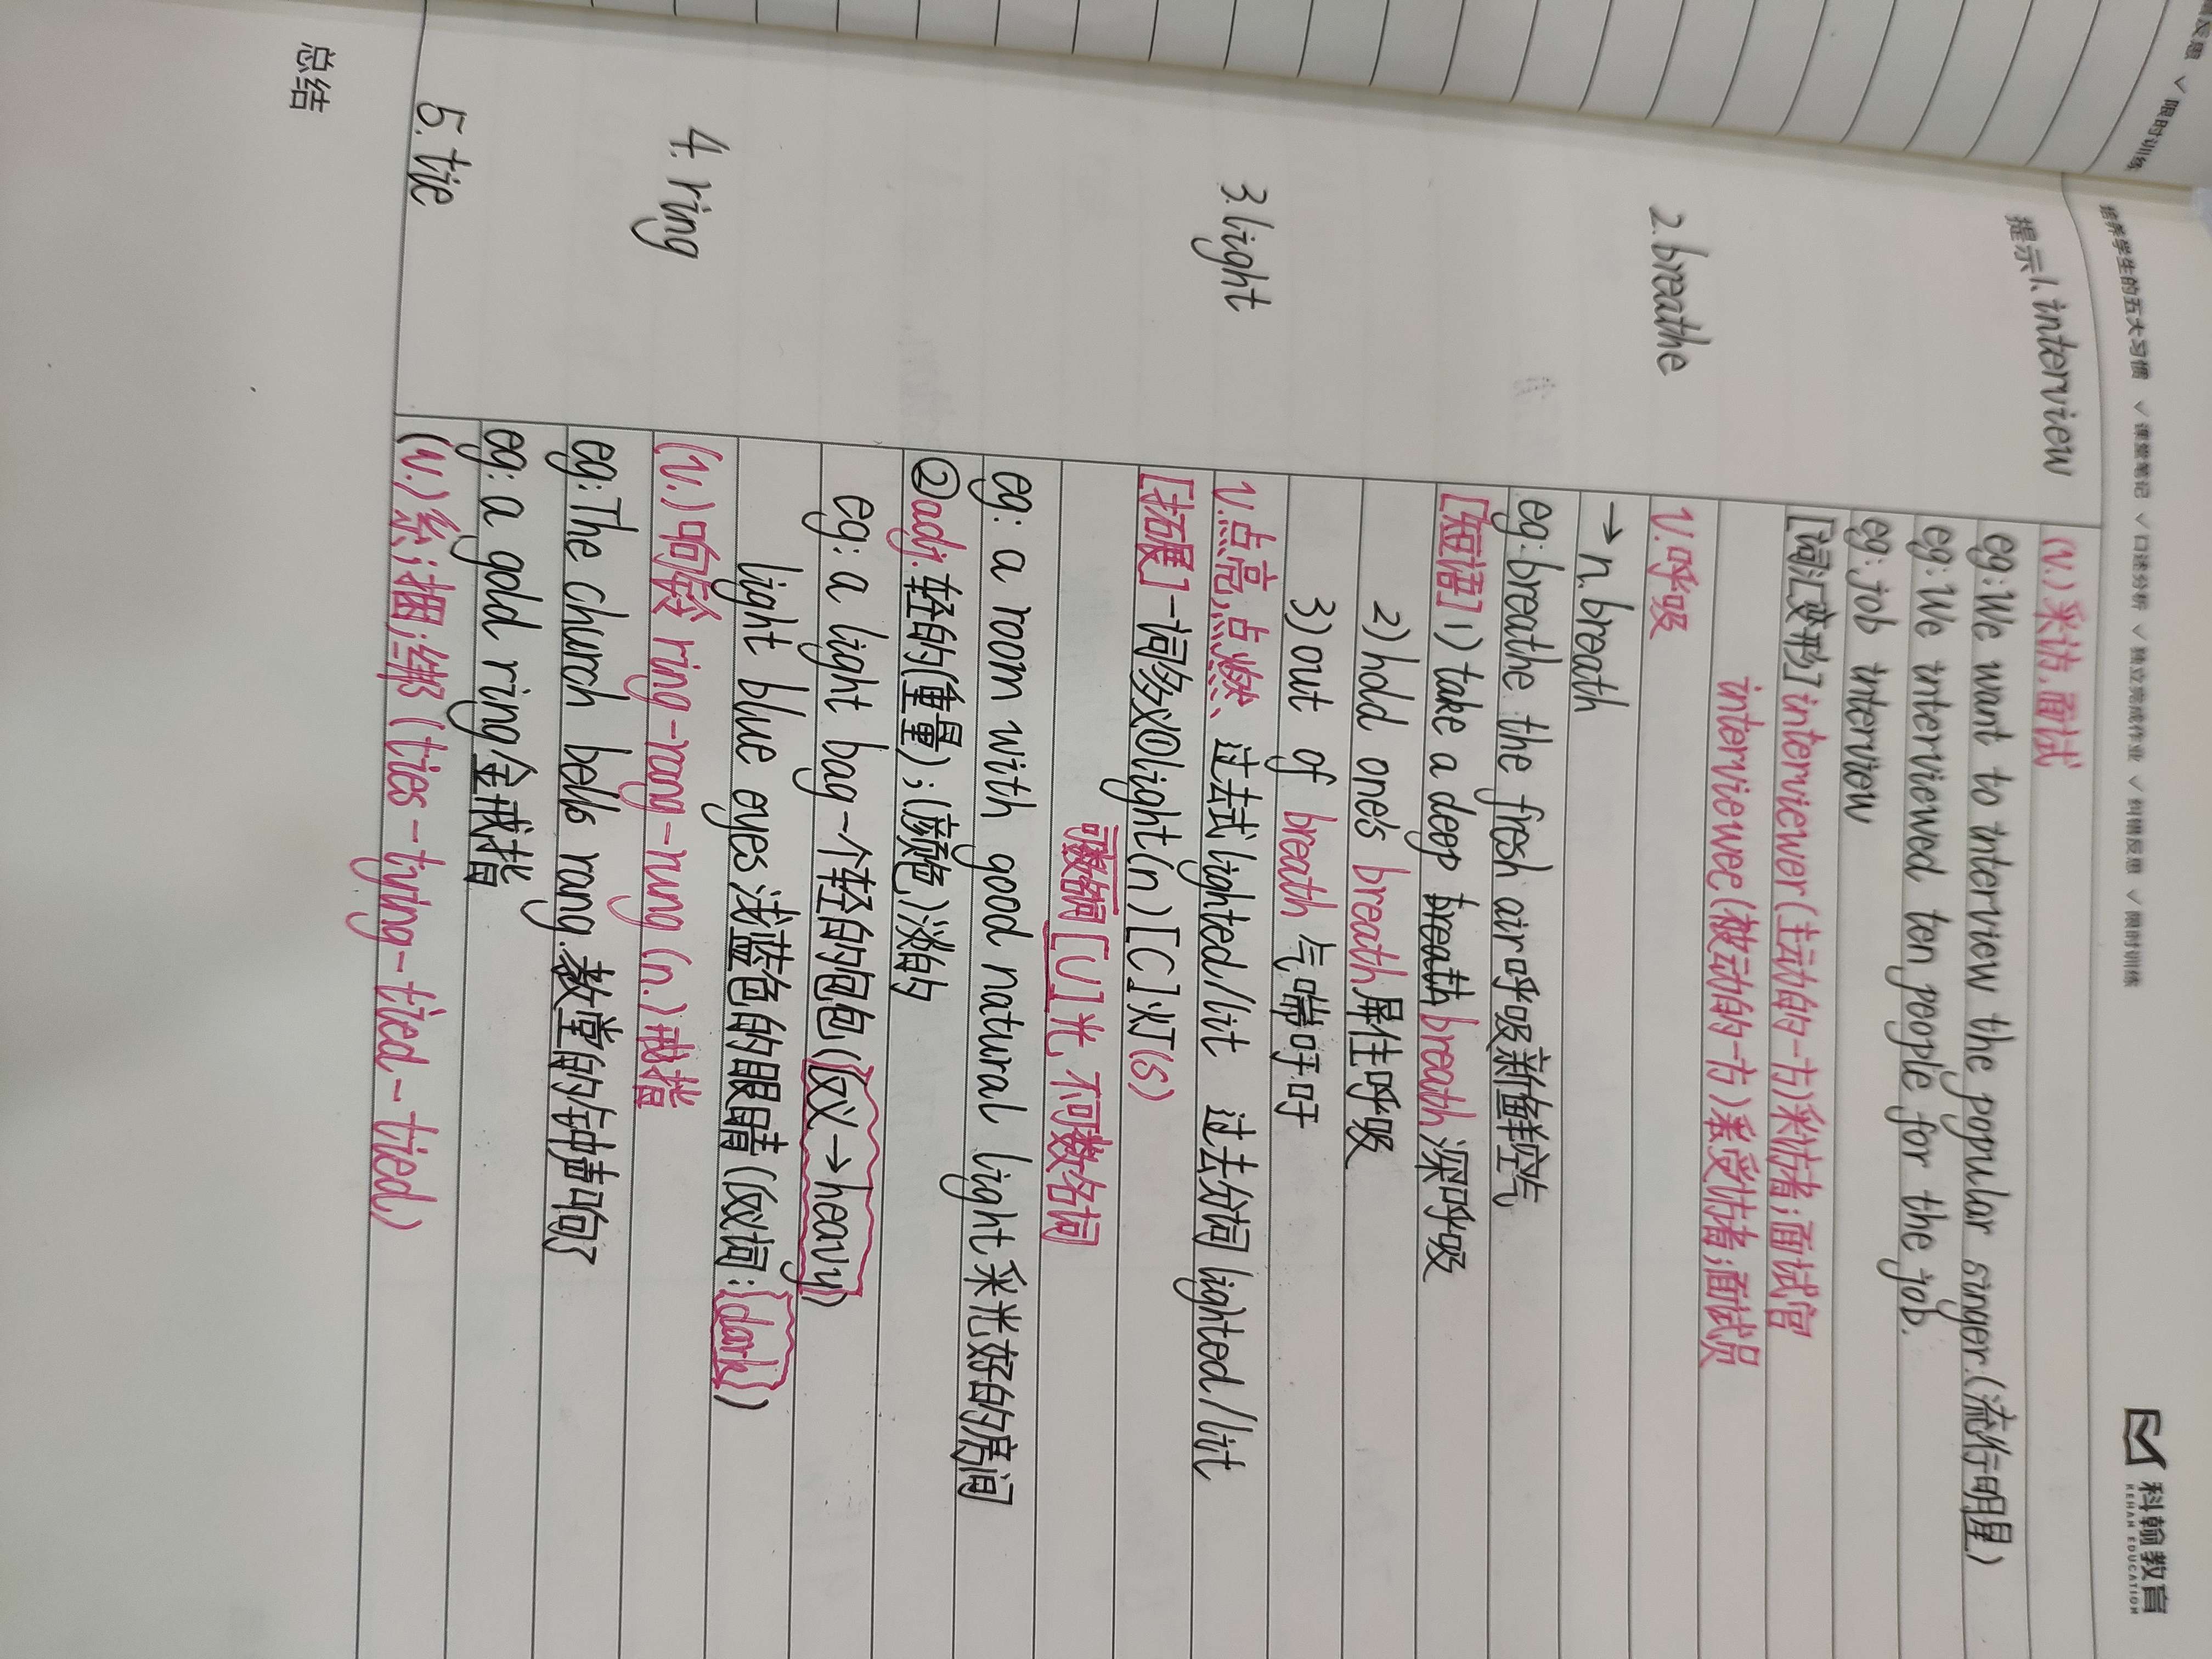 培养学生的五大习惯 ✓课堂笔记 ✓口述分析 ✓独立完成作业 ✓纠错反思 ✓限时训练
科翰教育
KEHAN EDUCATION
反思 ✓限时训练
提示1.interview
(v.)采访,面试
eg:We want to interview the popular singer.(流行明星)
eg:We interviewed ten people for the job.
eg:job interview
[词汇变形]interviewer(主动的一方)采访者;面试官
interviewee(被动的一方)受访者;面试员
2.breathe
v.呼吸
→n.breath
eg:breathe the fresh air呼吸新鲜空气
[短语]1)take a deep breath breath深呼吸
2)hold one's breath屏住呼吸
3)out of breath气喘吁吁
3.light
v.点亮,点燃、过去式lighted/lit 过去分词lighted/lit
[拓展]一词多义①light(n.)[C]灯(s)
可数名词[U]光 不可数名词
eg: a room with good natural light采光好的房间
②adj.轻的(重量);(颜色)淡的
eg: a light bag一个轻的包包(反义→heavy)
light blue eyes浅蓝色的眼睛(反义词:dark)
4. ring
(v.)响铃 ring-rang-rung (n.)戒指
eg:The church bells rang.教堂的钟声响了
eg: a gold ring金戒指
5. tie
(v.)系;捆;绑(ties-tying-tied-tied)
总结